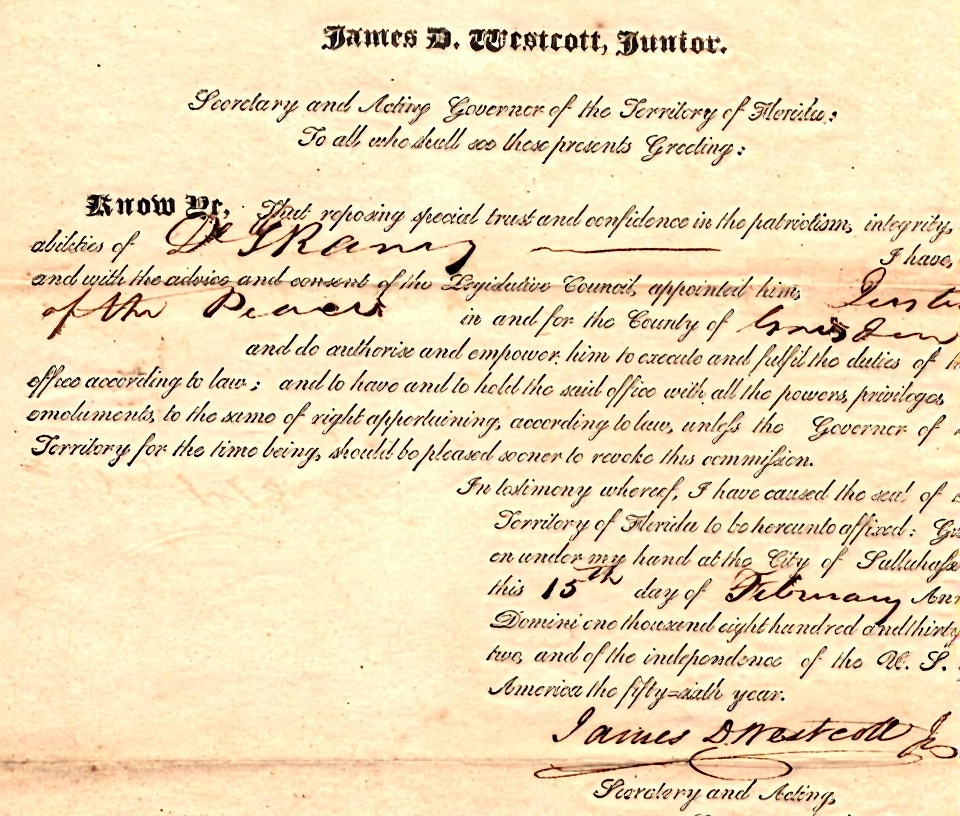 James D. Westcott, Junior.
Secretary and Acting Governor of the Territory of Florida:
To all who shall see these presents Greeting:
Know Ye, That reposing special trust and confidence in the patriotism, integrity,
abilities of I have,
and with the advice and consent of the Legislative Council, appointed him,
of the Peace in and for the County of
and do authorise and empower him to execute and fulfil the duties of
office according to law; and to have and to hold the said office with all the powers, privileges
emoluments, to the same of right appertaining, according to law, unless the Governor of
Territory for the time being, should be pleased sooner to revoke this commission.
In testimony whereof, I have caused the seal of
Territory of Florida to be hereunto affixed: Giv
en under my hand at the City of Tallahasse
this 15th day of February Ann
Domini one thousand eight hundred and thirty
two, and of the independence of the U. S.
America the fifty=sixth year.
James D. Westcott Jr
Secretary and Acting,